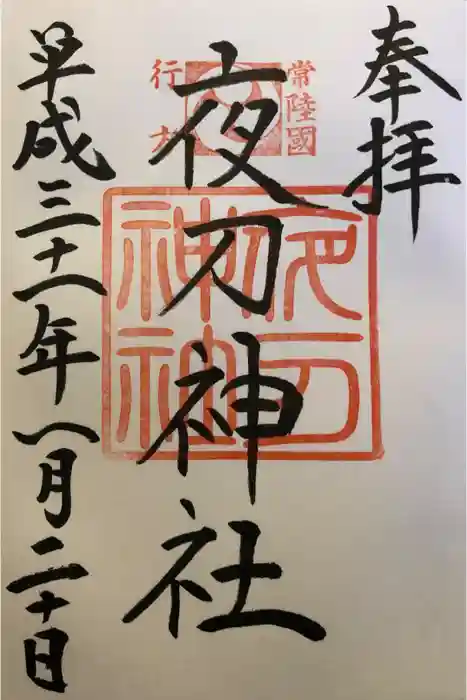 奉拝
常陸國
行方
夜刀神社
夜刀
神社
平成三十一年一月二十日